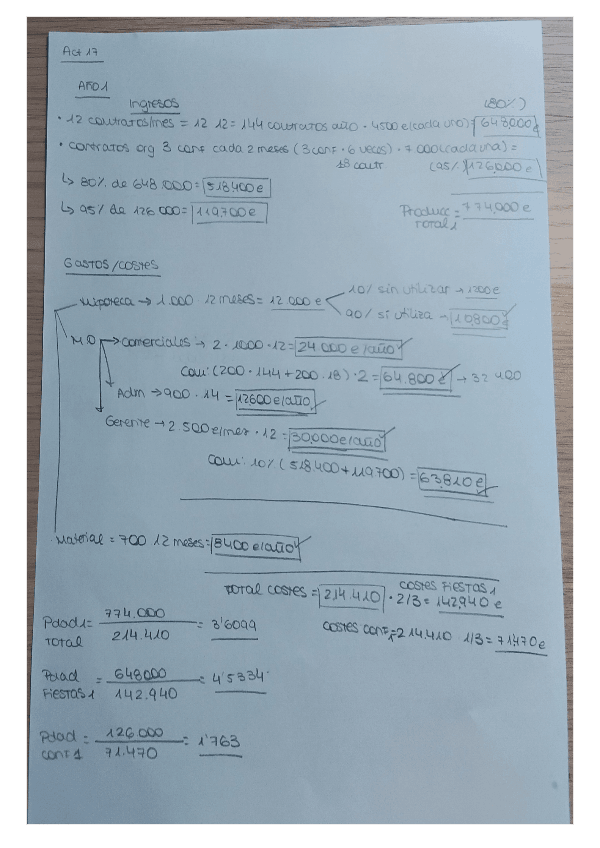 Act 17
AÑO 1
Ingresos
(80%)
• 12 contratos/mes = 12 · 12 = 144 contratos año · 4500 e (cada uno) = 648000 e
• contratos org 3 conf cada 2 meses (3 conf · 6 veces) · 7000 (cada una) =
18 contr (95%) 126.000 e
↳ 80% de 648.000 = 518400 e
↳ 95% de 126000 = 119.700 e
Producc Total 1 = 774.000 e
GASTOS/COSTES
Hipoteca → 1.000 · 12 meses = 12 000 e
10% sin utilizar → 1200 e
90% si utiliza → 10800 e
MO → Comerciales → 2 · 1000 · 12 = 24.000 e/año
Com: (200 · 144 + 200 · 18) · 2 = 64.800 e → 32 400
Adm → 900 · 14 = 12600 e/año
Gerente → 2.500 e/mes · 12 = 30,000 e/año
Com: 10% (518400 + 119700) = 63810 e
Material = 700 · 12 meses = 8400 e/año
TOTAL COSTES = 214.410 · 2/3 = 142,940 e
COSTES FIESTAS 1
COSTES CONF 1 = 214.410 · 1/3 = 71470 e
Pdad 1 TOTAL = 774.000 / 214.410 = 3'6099
Pdad FIESTAS 1 = 648000 / 142.940 = 4'5334
Pdad conf 1 = 126.000 / 71.470 = 1'763